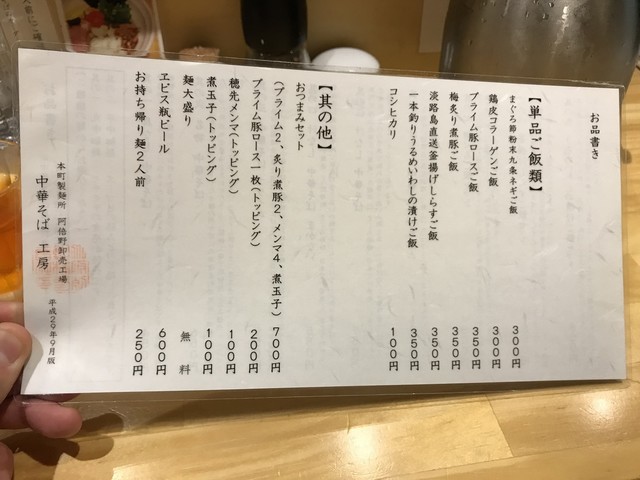 お品書き
【単品ご飯類】
まぐろ節粉末九条ネギご飯 300円
鶏皮コラーゲンご飯 300円
プライム豚ロースご飯 350円
梅炙り煮豚ご飯 350円
淡路島直送釜揚げしらすご飯 350円
一本釣りうるめいわしの漬けご飯 350円
コシヒカリ 100円
【其の他】
おつまみセット
(プライム2、炙り煮豚2、メンマ4、煮玉子) 700円
プライム豚ロース一枚(トッピング) 200円
穂先メンマ(トッピング) 100円
煮玉子(トッピング) 100円
麺大盛り 無料
ヱビス瓶ビール 600円
お持ち帰り麺2人前 250円
本町製麺所 阿倍野卸売工場
中華そば 工房
平成29年9月版